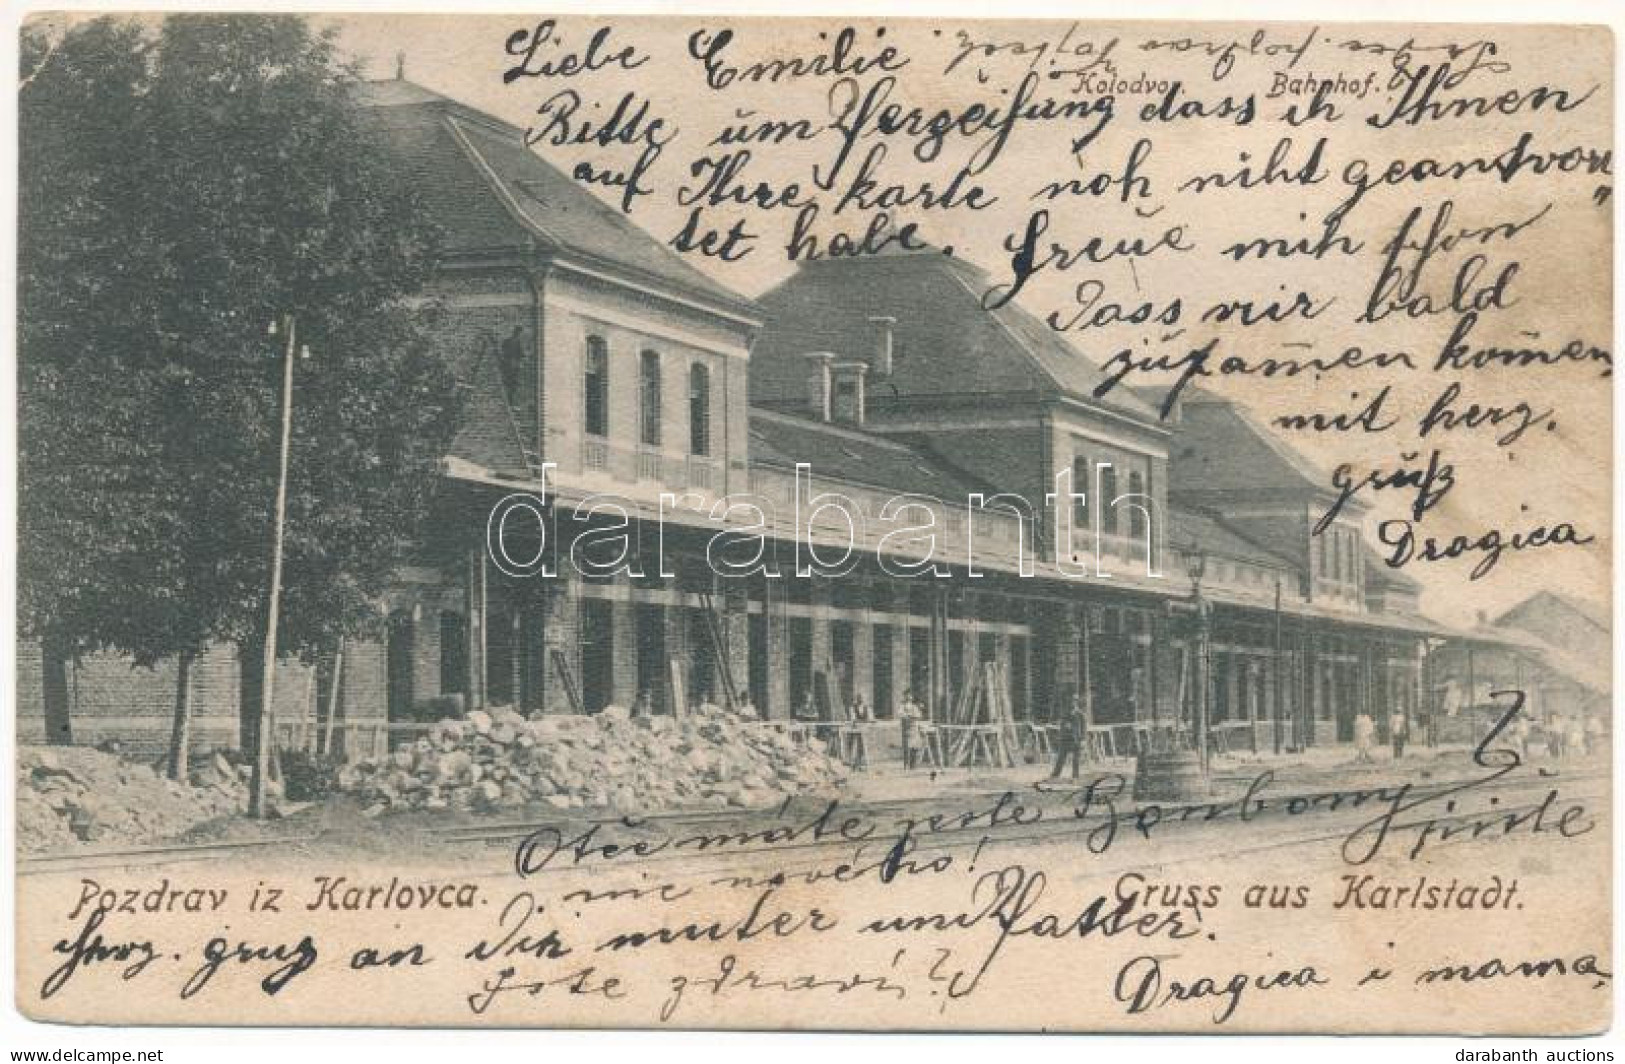 Liebe Emilie
Kolodvor. Bahnhof.
Bitte um Verzeihung dass ih Ihnen
auf Ihre karte noh niht geantvor„
tet habe. Freue mih schon
dass wir bald
zusamen komen
mit herz.
gruß
Dragica
Otče máte jeste Bonbony
jiste
nic nového!
Pozdrav iz Karlovca.
Gruss aus Karlstadt.
herz. gruß an Dih muter und Vatter.
Jste zdraví?
Dragica i mama
darabanth
darabanth auctions